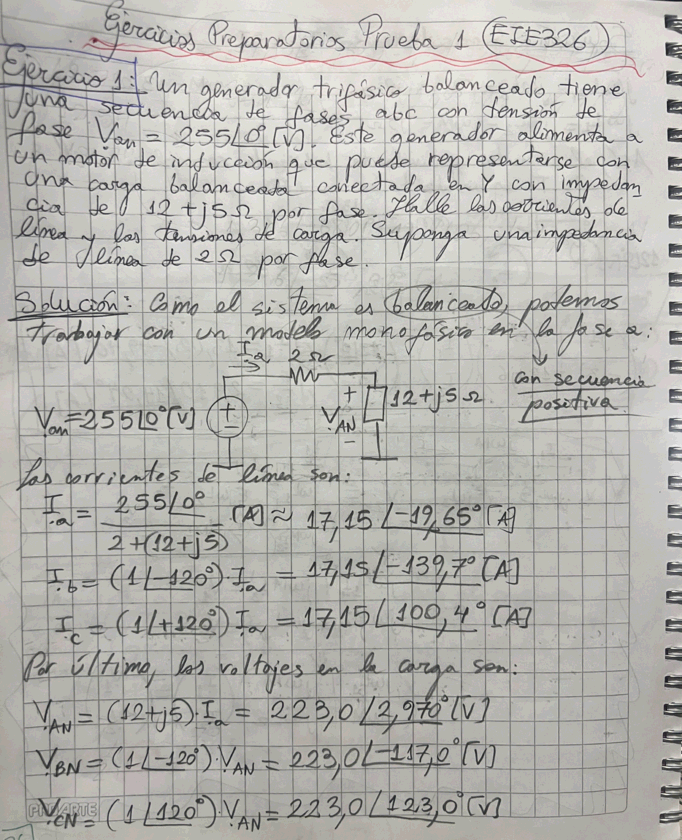 Ejercicios Preparatorios Prueba 1 (EIE326)
Ejercicio 1: Un generador trifásico balanceado tiene
una secuencia de fases abc con tensión de
fase Van = 255∠0° [V]. Este generador alimenta a
un motor de inducción que puede representarse con
una carga balanceada conectada en Y con impedan
cia de 12+j5Ω por fase. Halle las corrientes de
línea y las tensiones de carga. Suponga una impedancia
de línea de 2Ω por fase.
Solución: Como el sistema es balanceado, podemos
trabajar con un modelo monofásico en la fase a:
con secuencia
positiva.
Ia 2Ω
Van=255∠0°[V] + - + VAN - 12+j5Ω
Las corrientes de línea son:
Ia = 255∠0° / 2+(12+j5) [A] ≈ 17,15∠-19,65° [A]
Ib = (1∠-120°)·Ia = 17,15∠-139,7° [A]
Ic = (1∠+120°)Ia = 17,15∠100,4° [A]
Por último, los voltajes en la carga son:
VAN = (12+j5)·Ia = 223,0∠2,970° [V]
VBN = (1∠-120°)·VAN = 223,0∠-117,0° [V]
VCN = (1∠120°)·VAN = 223,0∠123,0° [V]